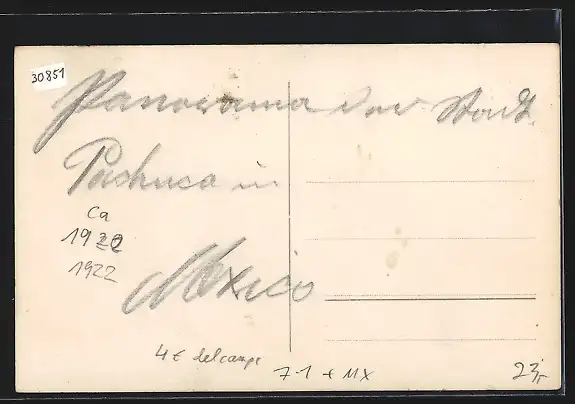 30851
Panorama der Stadt
Pachuca in
Ca
1920
1922
Mexico
4€ delcampe
7-1 + MX
23,-